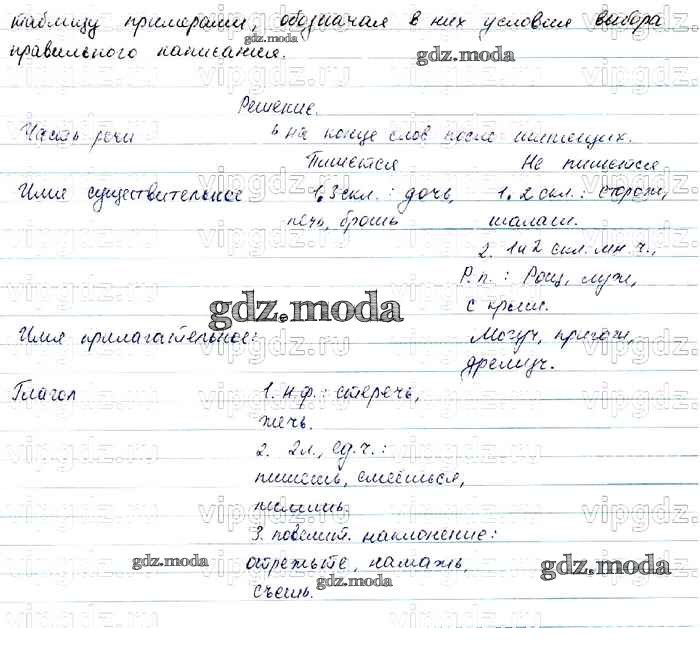 таблицу примерами, обозначая в них условия выбора
правильного написания.
gdz.moda
gdz.moda
Решение.
Часть речи ь на конце слов после шипящих.
Пишется Не пишется
Имя существительное 1. 3 скл.: дочь, 1. 2 скл.: сторож,
печь, брошь шалаш.
2. 1 и 2 скл. мн. ч.,
Р.п.: Рощ, луж,
gdz.moda
с крыш.
Имя прилагательное: Могуч, пригож,
дремуч.
Глагол 1. н.ф.: стеречь,
жечь.
2. 2 л., ед. ч.:
пишешь, смеёшься,
пилишь.
3. повелит. наклонение:
отрежьте, намажь,
съешь.
gdz.moda
gdz.moda
gdz.moda
vipgdz.ru